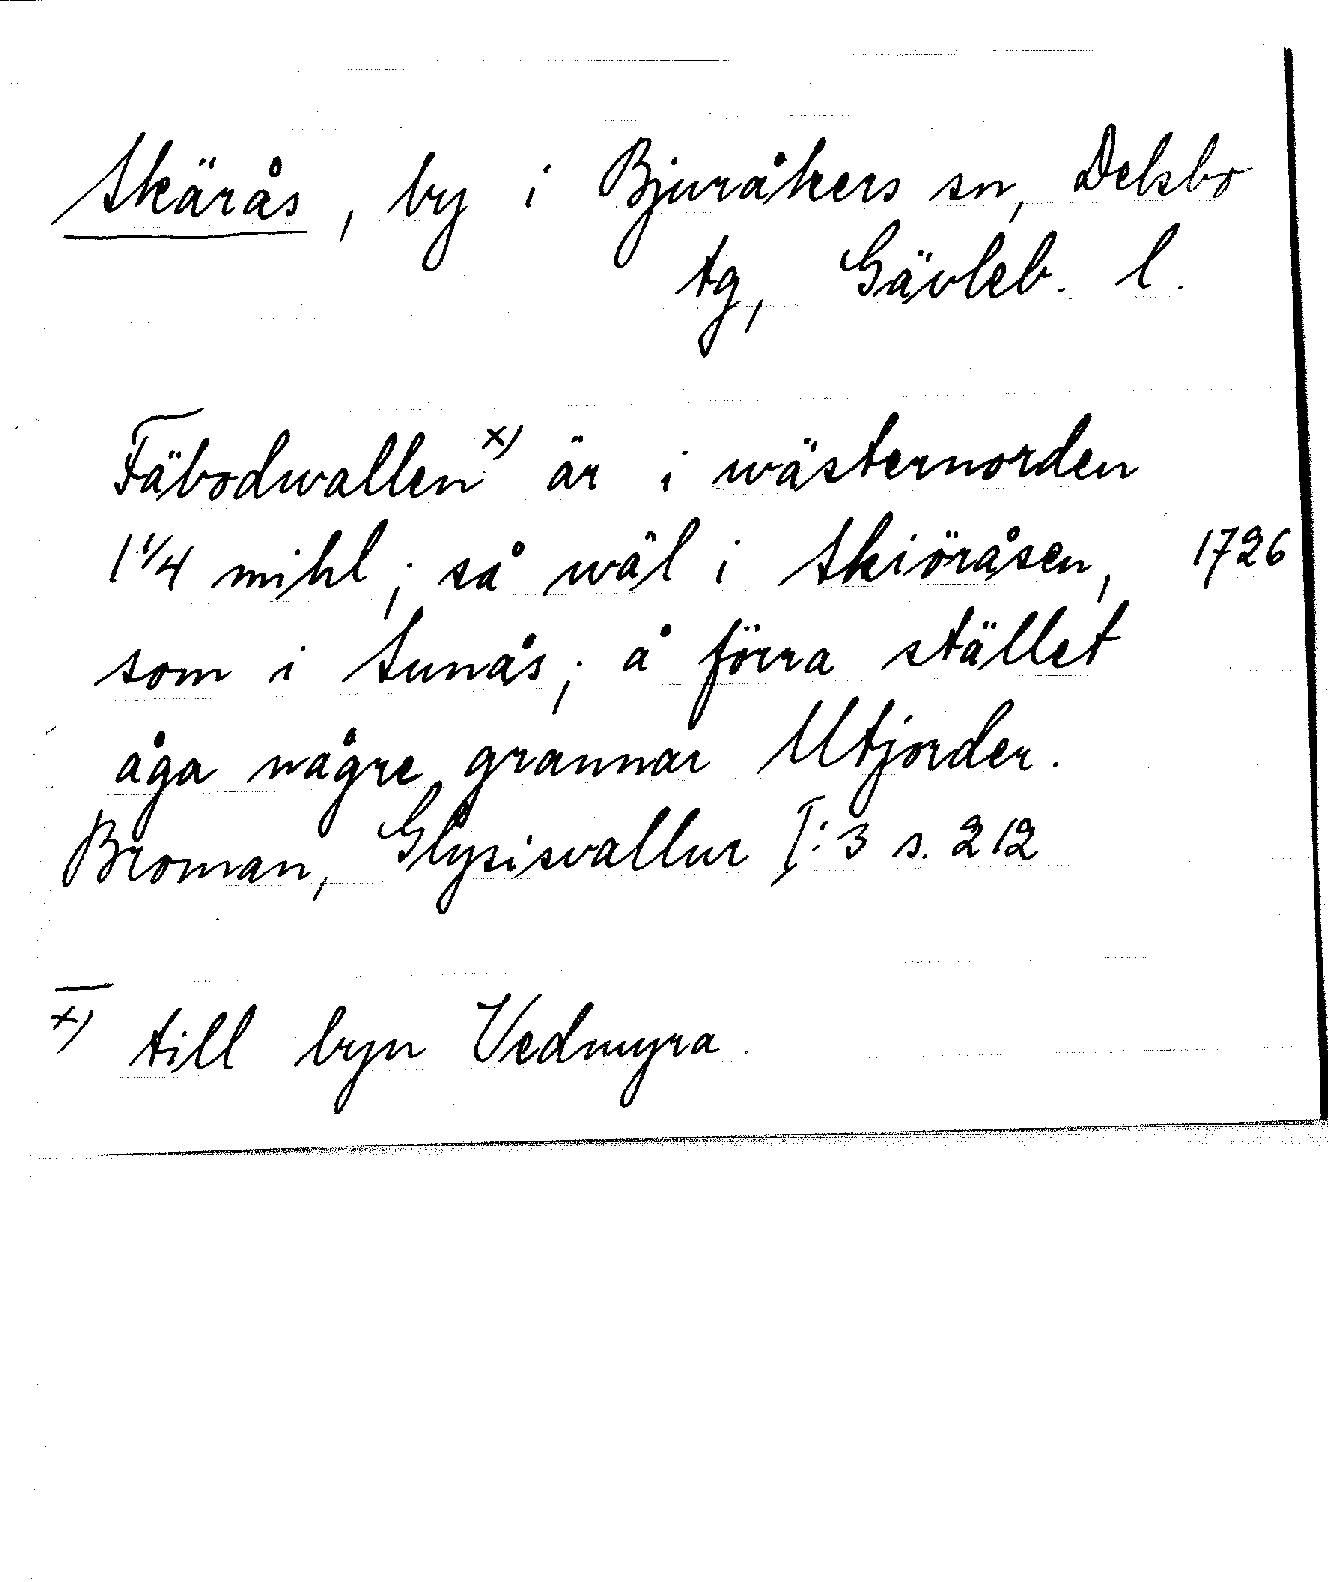 Skärås, by i Bjuråkers sn, Delsbo
tg, Gävleb. l.
Fäbodwallen x) är i wästernorden
1 1/4 mihl; så wäl i Skiöråsen, 1726
som i Sunås; å förra stället
åga någre grannar Utjorder.
Broman, Glysisvallur I:3 s. 212
x) till byn Vedmyra.